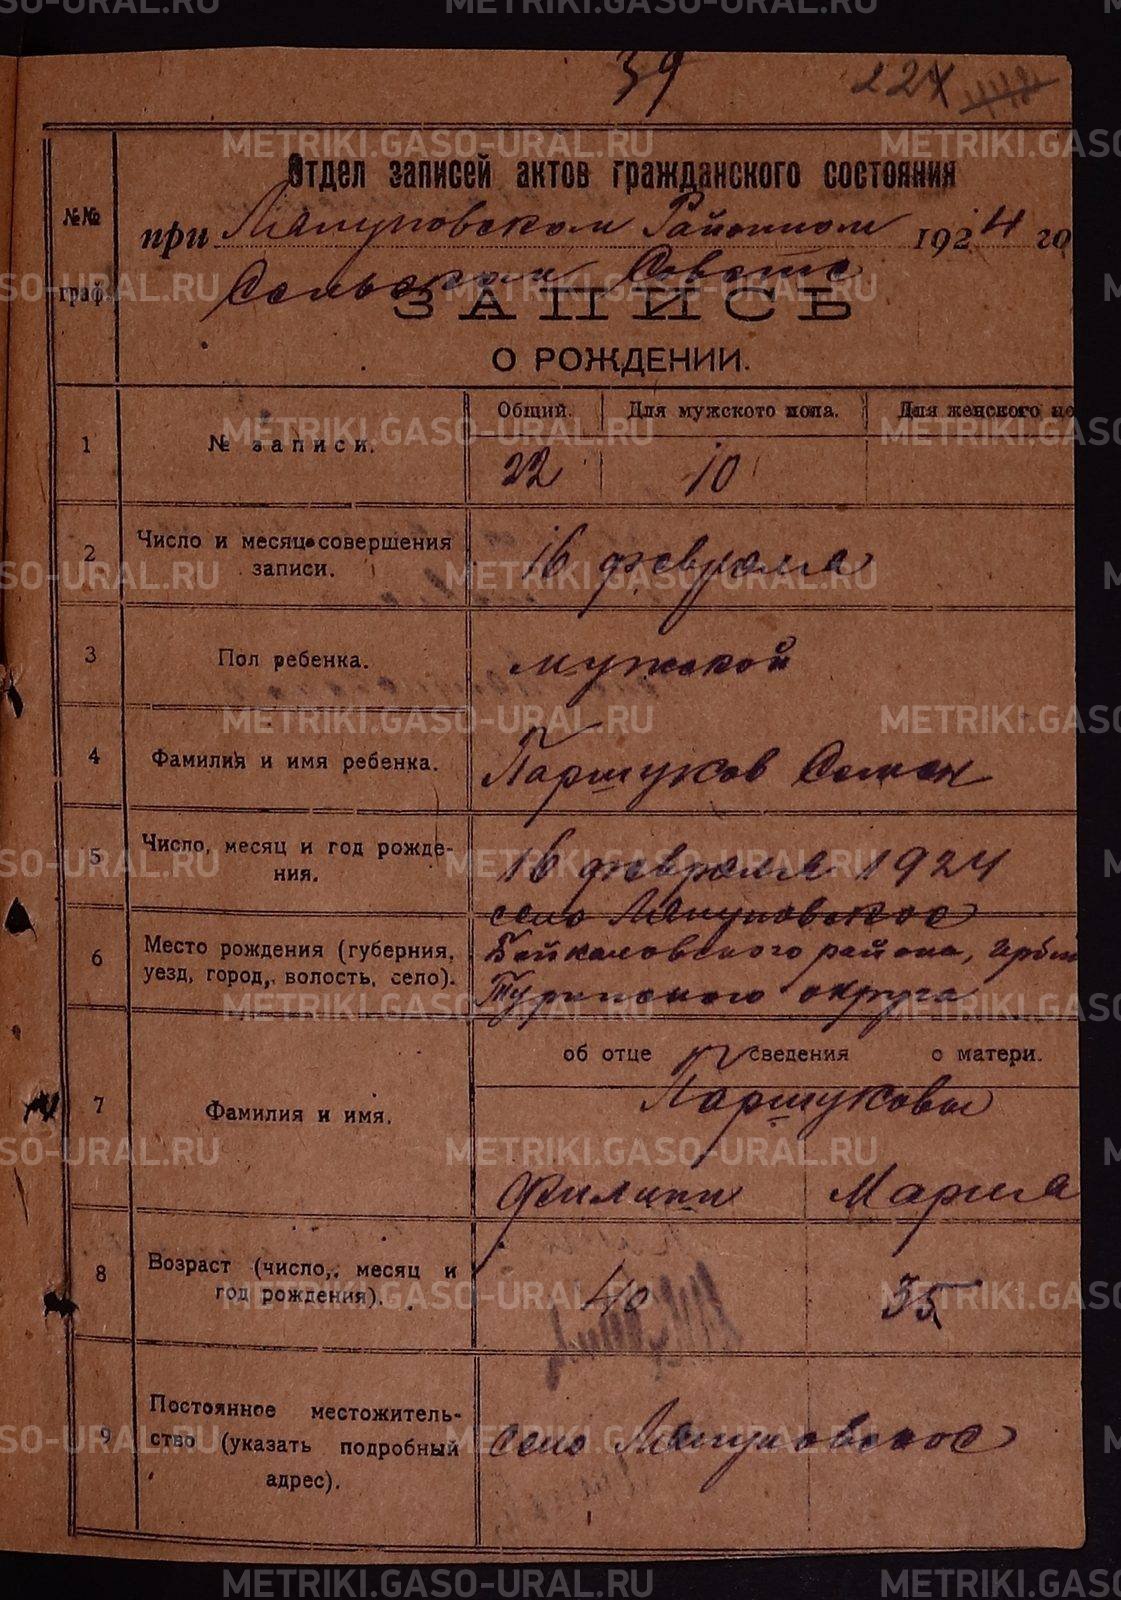 39
224
Отдел записей актов гражданского состояния
при Ляпуновском Районном 1924 го
Сельском Совете
№№ граф.
ЗАПИСЬ
О РОЖДЕНИИ.
1 № записи. Общий. Для мужского пола. Для женского по
22 10
2 Число и месяц совершения записи. 16 февраля
3 Пол ребенка. мужской
4 Фамилия и имя ребенка. Паршуков Семен
5 Число, месяц и год рожде-
ния. 16 февраля 1924
село Ляпуновское
6 Место рождения (губерния, Байкаловского района, Ирбит
уезд, город, волость, село). Туринского округа
об отце Сведения о матери.
7 Фамилия и имя. Паршуковы
Филипп Мария
8 Возраст (число, месяц и
год рождения). 40 35
9 Постоянное местожитель-
ство (указать подробный село Ляпуновское
адрес).
METRIKI.GASO-URAL.RU